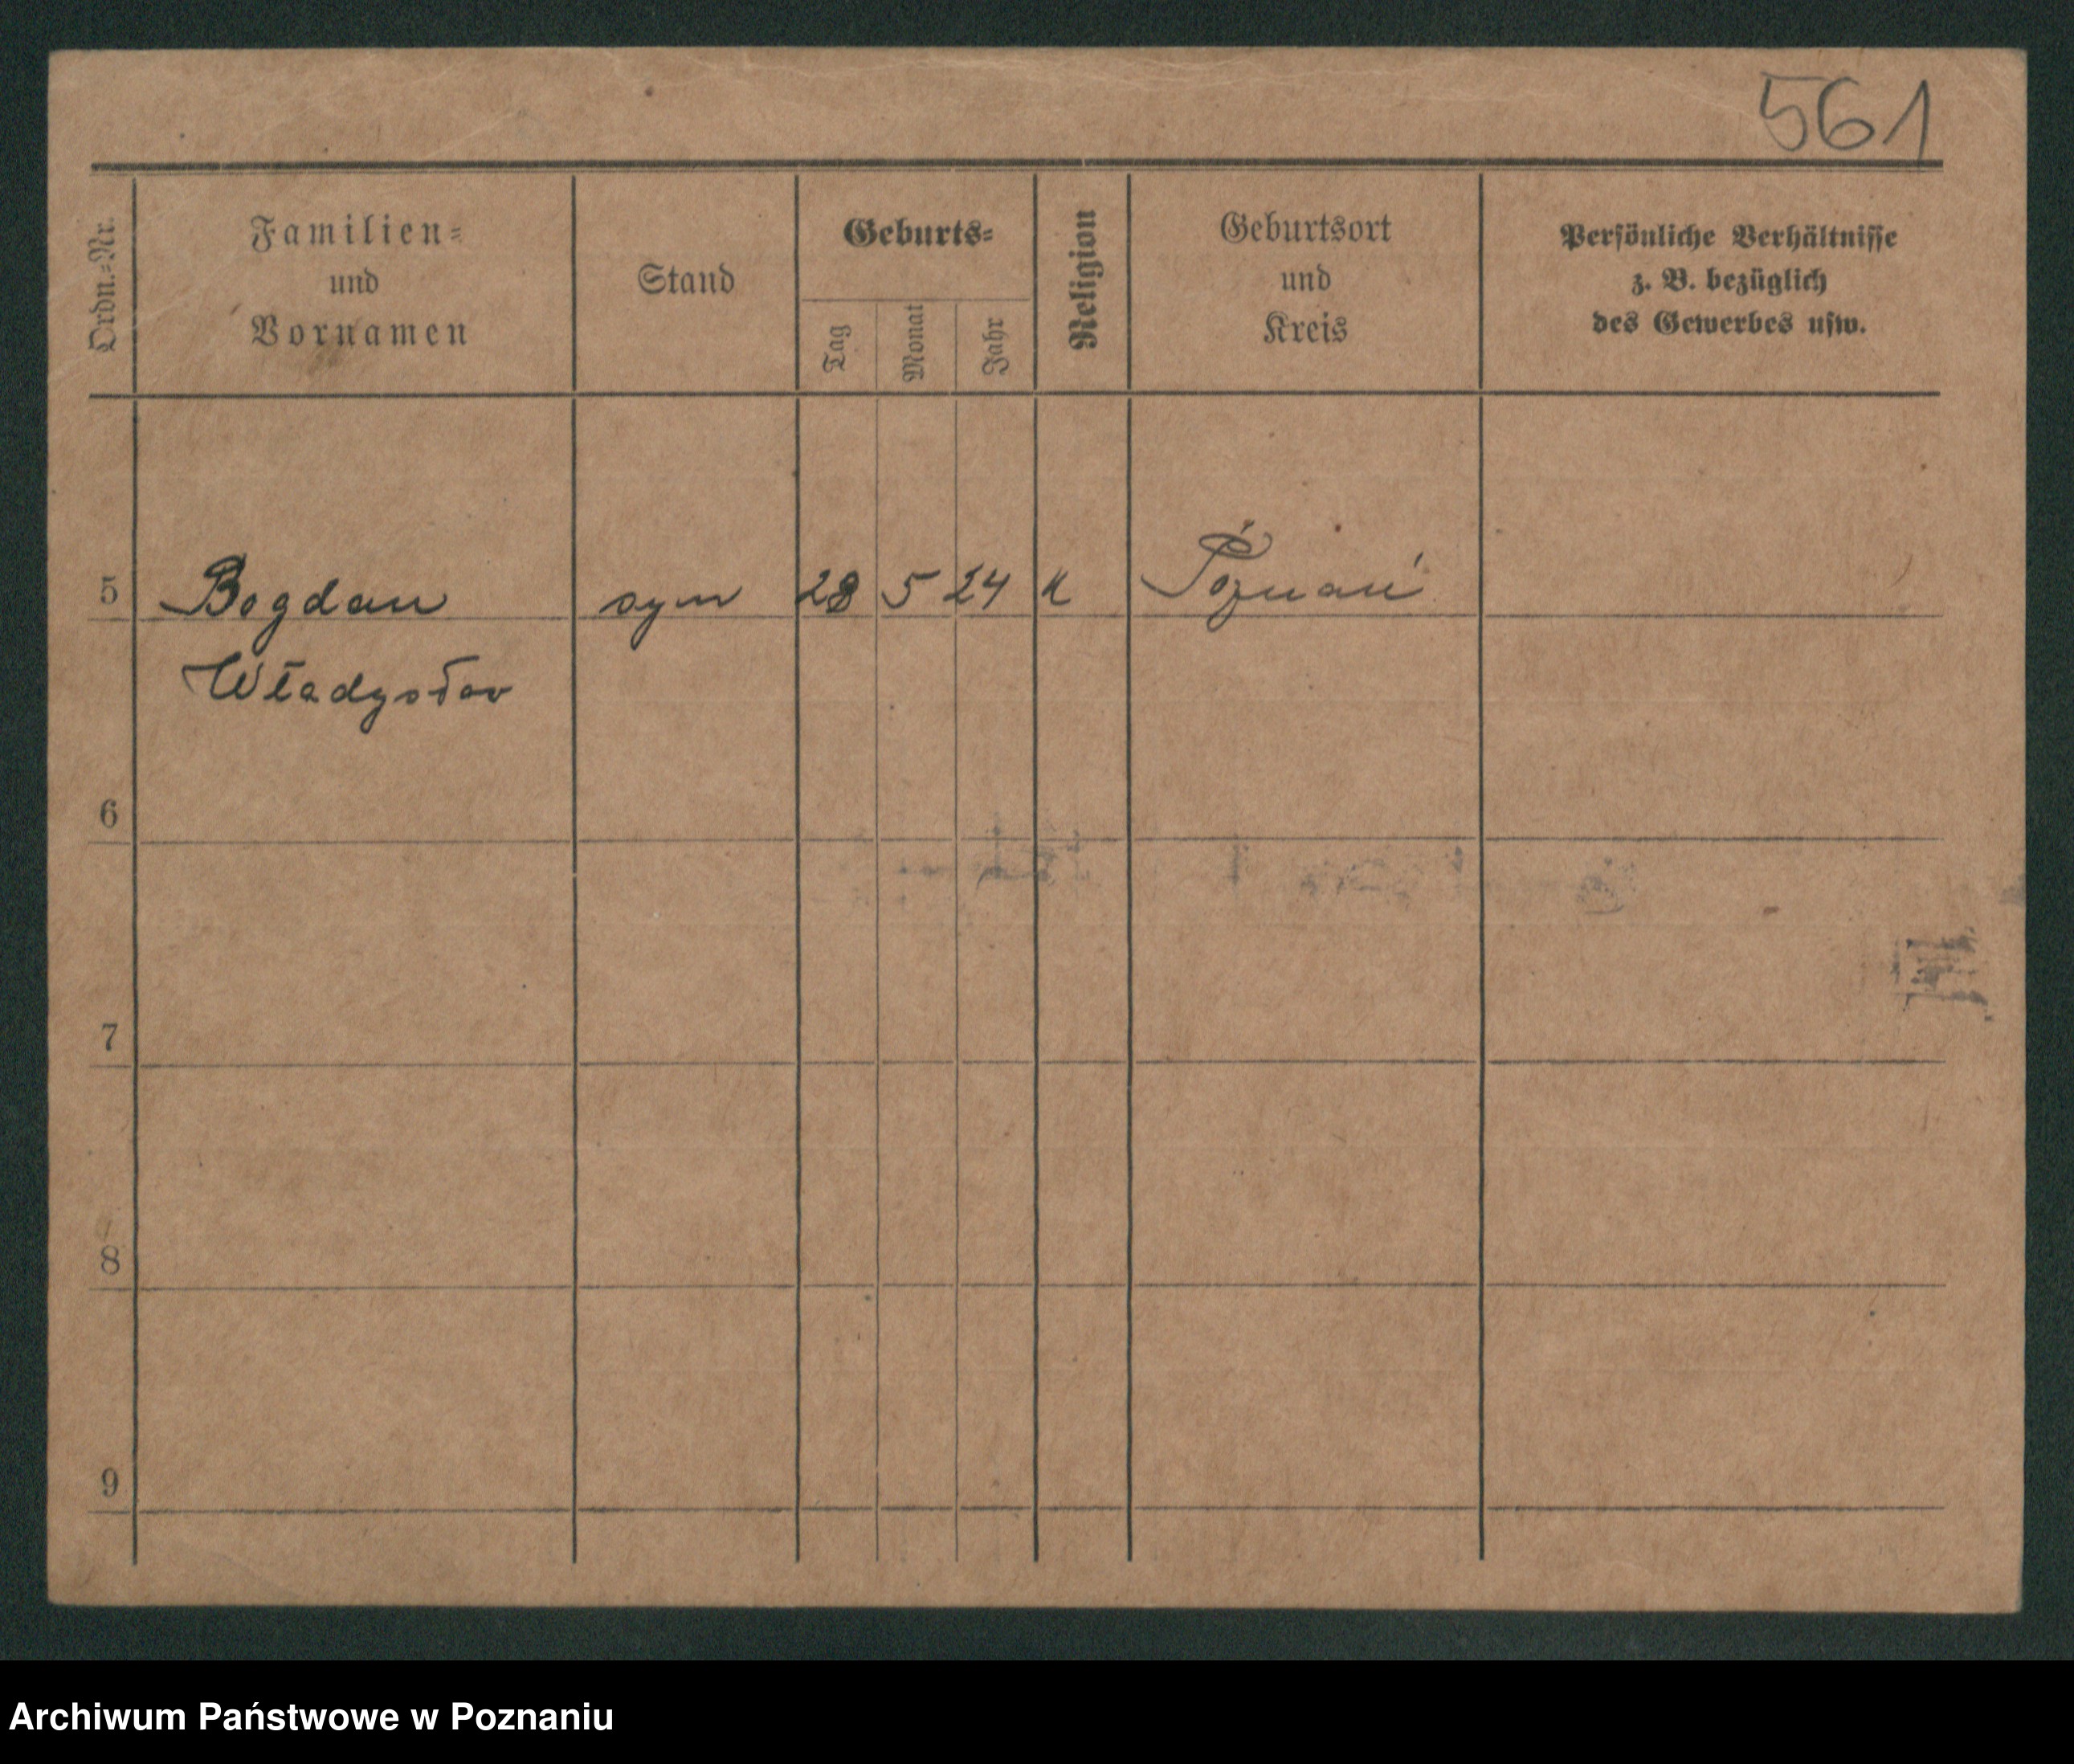 561
Ordn.=Nr.
Familien=
und
Vornamen
Stand
Geburts=
Tag
Monat
Jahr
Religion
Geburtsort
und
Kreis
Persönliche Verhältnisse
z. B. bezüglich
des Gewerbes usw.
5 Bogdan syn 28 5 24 K Poznań
Władysław
6
7
8
9
Archiwum Państwowe w Poznaniu